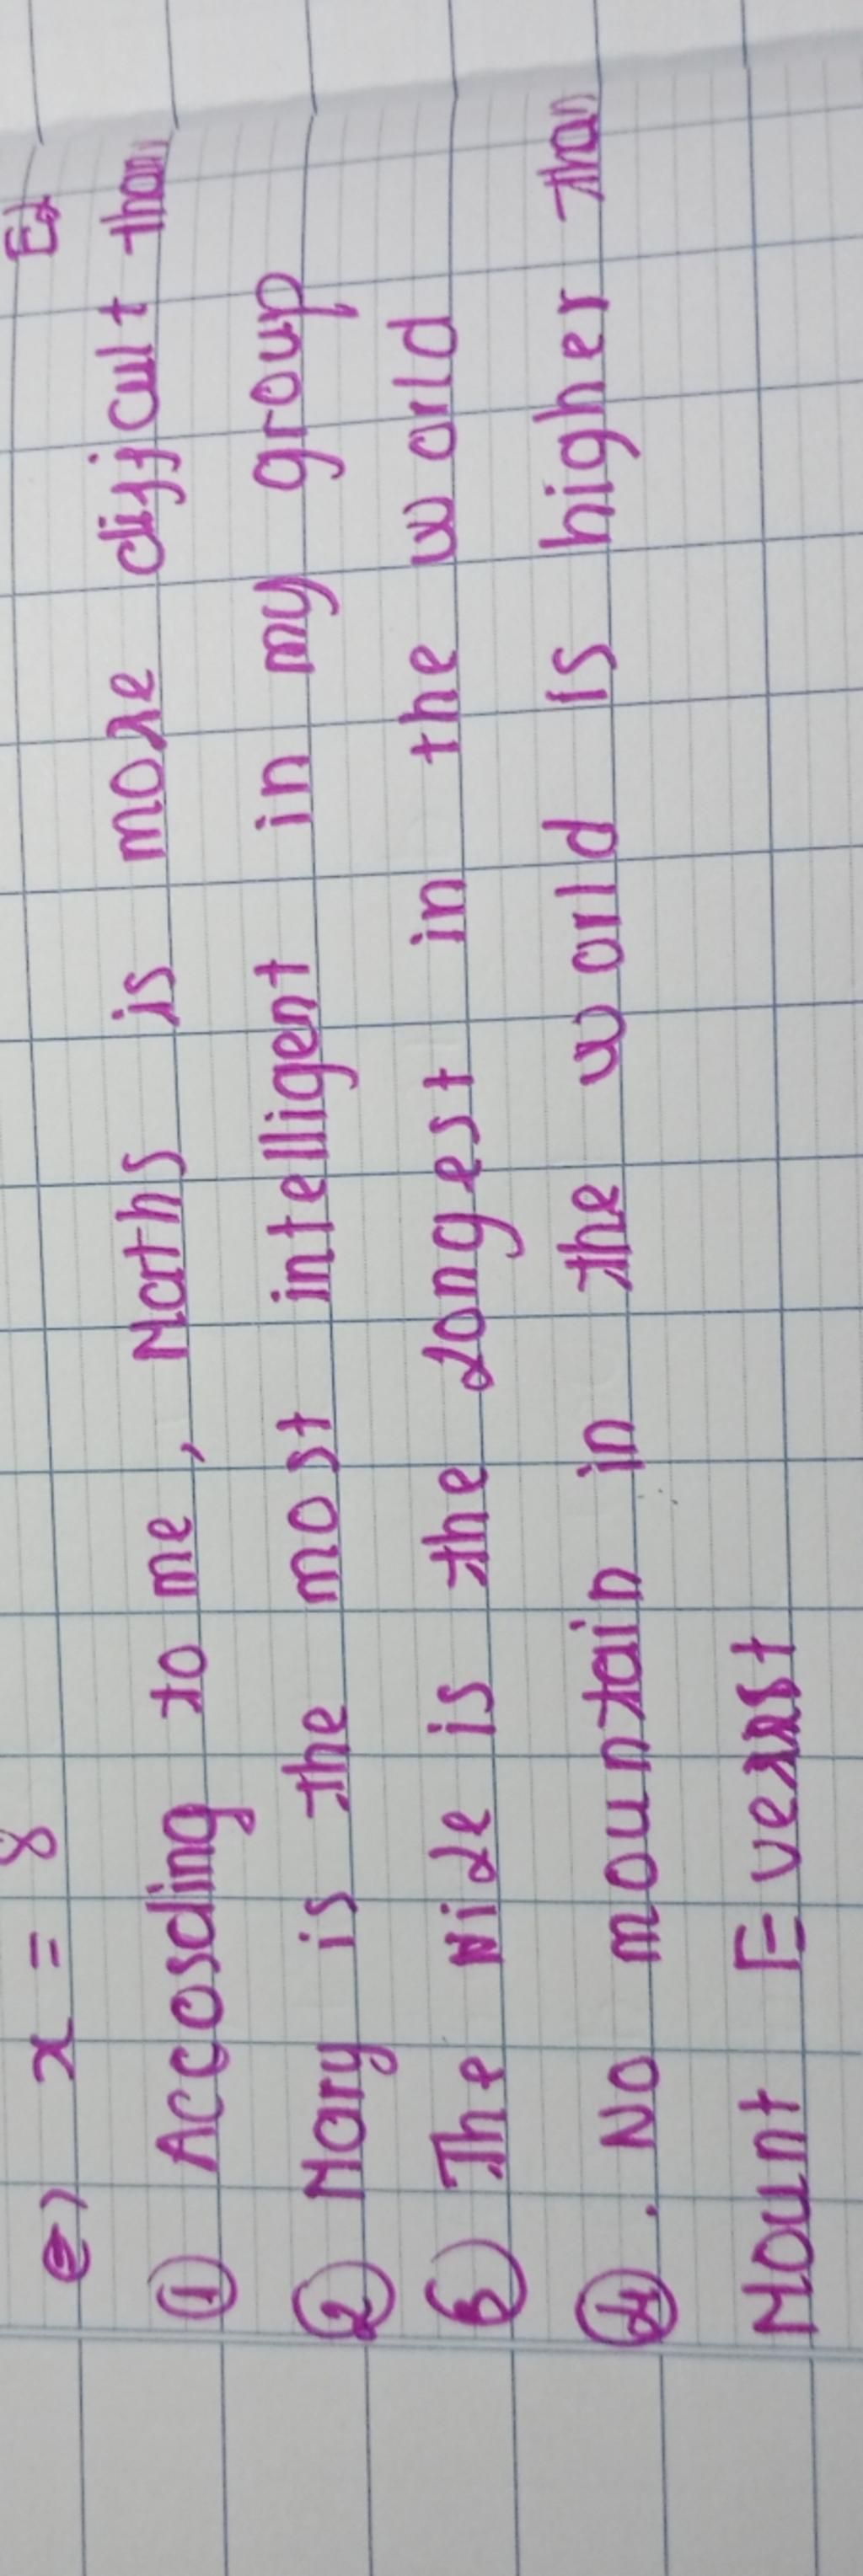 e) x = 8
① Accosding to me, Maths is more difficult than
② Mary is the most intelligent in my group
③ The Nile is the longest in the world
④. No mountain in the world is higher than
Mount Everest